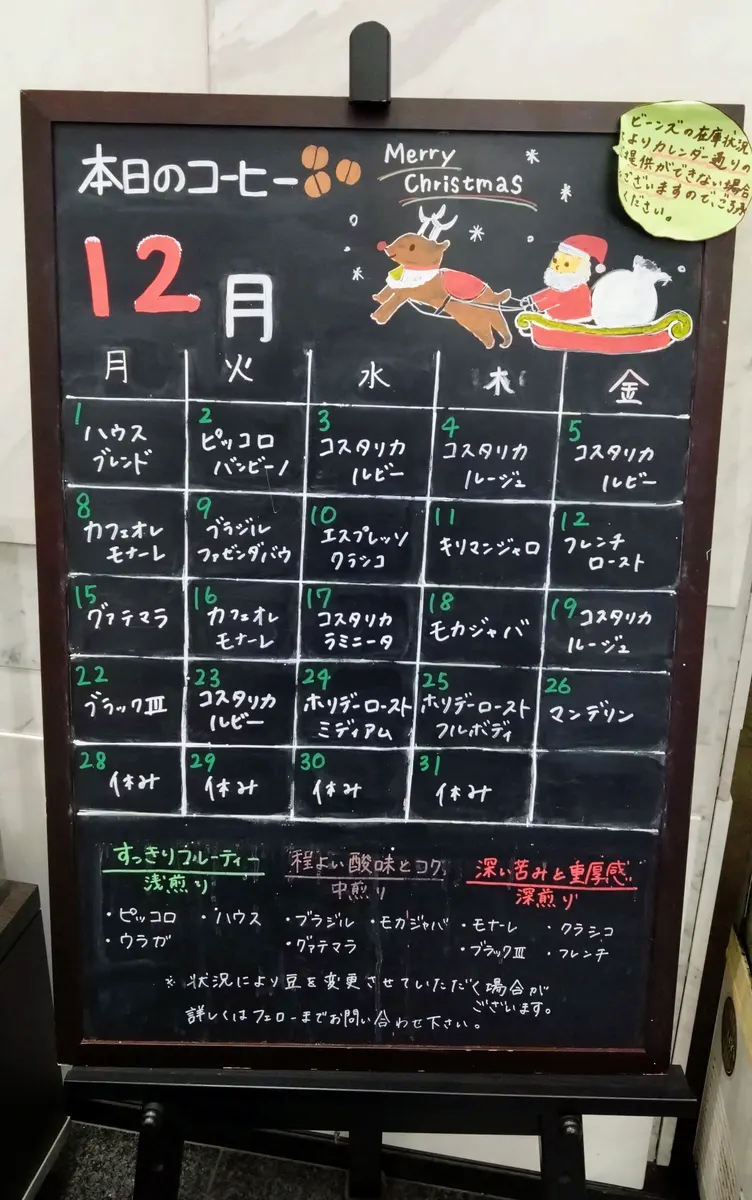 本日のコーヒー
Merry
Christmas
ビーンズの在庫状況
よりカレンダー通りの
提供ができない場合
ございますので、ご了承
ください。
12月
月 火 水 木 金
1 ハウス
ブレンド
2 ピッコロ
バンビーノ
3 コスタリカ
ルビー
4 コスタリカ
ルージュ
5 コスタリカ
ルビー
8 カフェオレ
モナーレ
9 ブラジル
ファゼンダバウ
10 エスプレッソ
クラシコ
11 キリマンジャロ
12 フレンチ
ロースト
15 グァテマラ
16 カフェオレ
モナーレ
17 コスタリカ
ラミニータ
18 モカジャバ
19 コスタリカ
ルージュ
22 ブラックⅢ
23 コスタリカ
ルビー
24 ホリデーロースト
ミディアム
25 ホリデーロースト
フルボディ
26 マンデリン
28 休み
29 休み
30 休み
31 休み
すっきりフルーティー
浅煎り
・ピッコロ ・ハウス
・ウラガ
程よい酸味とコク
中煎り
・ブラジル ・モカジャバ
・グァテマラ
深い苦みと重厚感
深煎り
・モナーレ ・クラシコ
・ブラックⅢ ・フレンチ
※ 状況により豆を変更させていただく場合が
ございます。
詳しくはフェローまでお問い合わせ下さい。